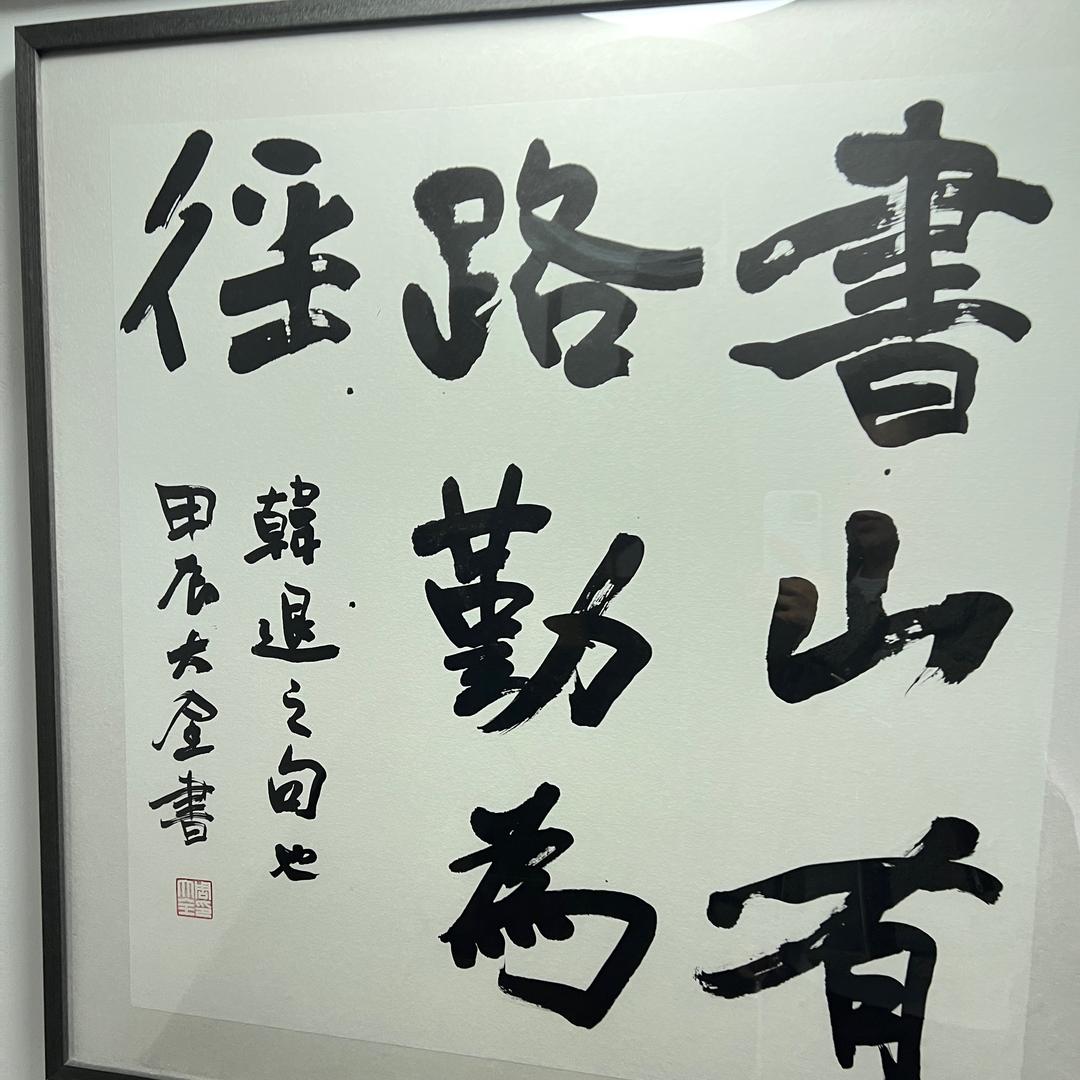 書山有
路勤為
徑
韓退之句也
甲辰大全書